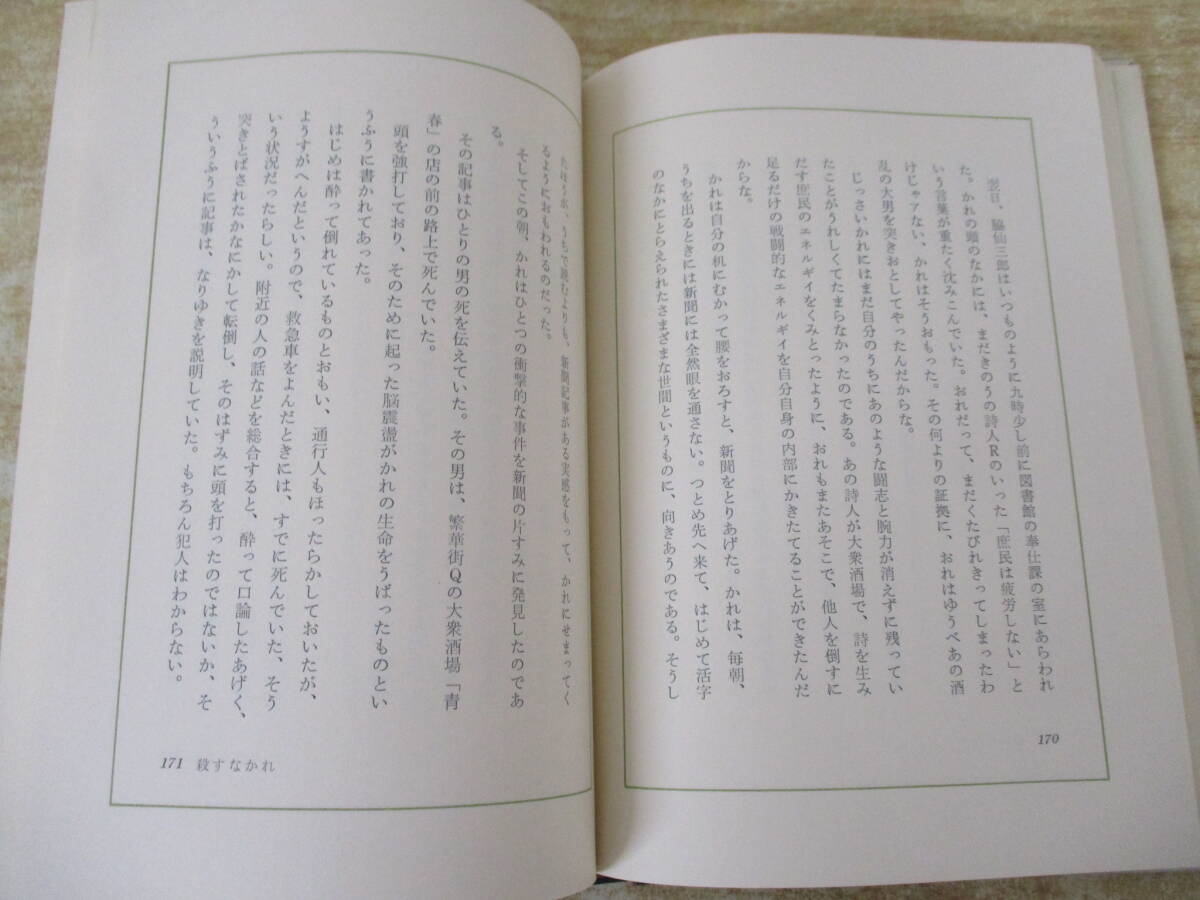 翌日、脇仙三郎はいつものように九時少し前に図書館の奉仕課の室にあらわれ
た。かれの頭のなかには、まだきのうの詩人Rのいった「庶民は疲労しない」と
いう言葉が重たく沈みこんでいた。おれだって、まだくたびれきってしまったわ
けじゃアない、かれはそうおもった。その何よりの証拠に、おれはゆうべあの酒
乱の大男を突きおとしてやったんだからな。
じっさいかれにはまだ自分のうちにあのような闘志と腕力が消えずに残ってい
たことがうれしくてたまらなかったのである。あの詩人が大衆酒場で、詩を生み
だす庶民のエネルギイをくみとったように、おれもまたあそこで、他人を倒すに
足るだけの戦闘的なエネルギイを自分自身の内部にかきたてることができたんだ
からな。
かれは自分の机にむかって腰をおろすと、新聞をとりあげた。かれは、毎朝、
うちを出るときには新聞には全然眼を通さない。つとめ先へ来て、はじめて活字
のなかにとらえられたさまざまな世間というものに、向きあうのである。そうし
170
たほうが、うちで読むよりも、新聞記事がある実感をもって、かれにせまってく
るようにおもわれるのだった。
そしてこの朝、かれはひとつの衝撃的な事件を新聞の片すみに発見したのであ
る。
その記事はひとりの男の死を伝えていた。その男は、繁華街Qの大衆酒場「青
春」の店の前の路上で死んでいた。
頭を強打しており、そのために起った脳震盪がかれの生命をうばったものとい
うふうに書かれてあった。
はじめは酔って倒れているものとおもい、通行人もほったらかしておいたが、
ようすがへんだというので、救急車をよんだときには、すでに死んでいた、そう
いう状況だったらしい。附近の人の話などを総合すると、酔って口論したあげく、
突きとばされたかなにかして転倒し、そのはずみに頭を打ったのではないか、そ
ういうふうに記事は、なりゆきを説明していた。もちろん犯人はわからない。
171 殺すなかれ